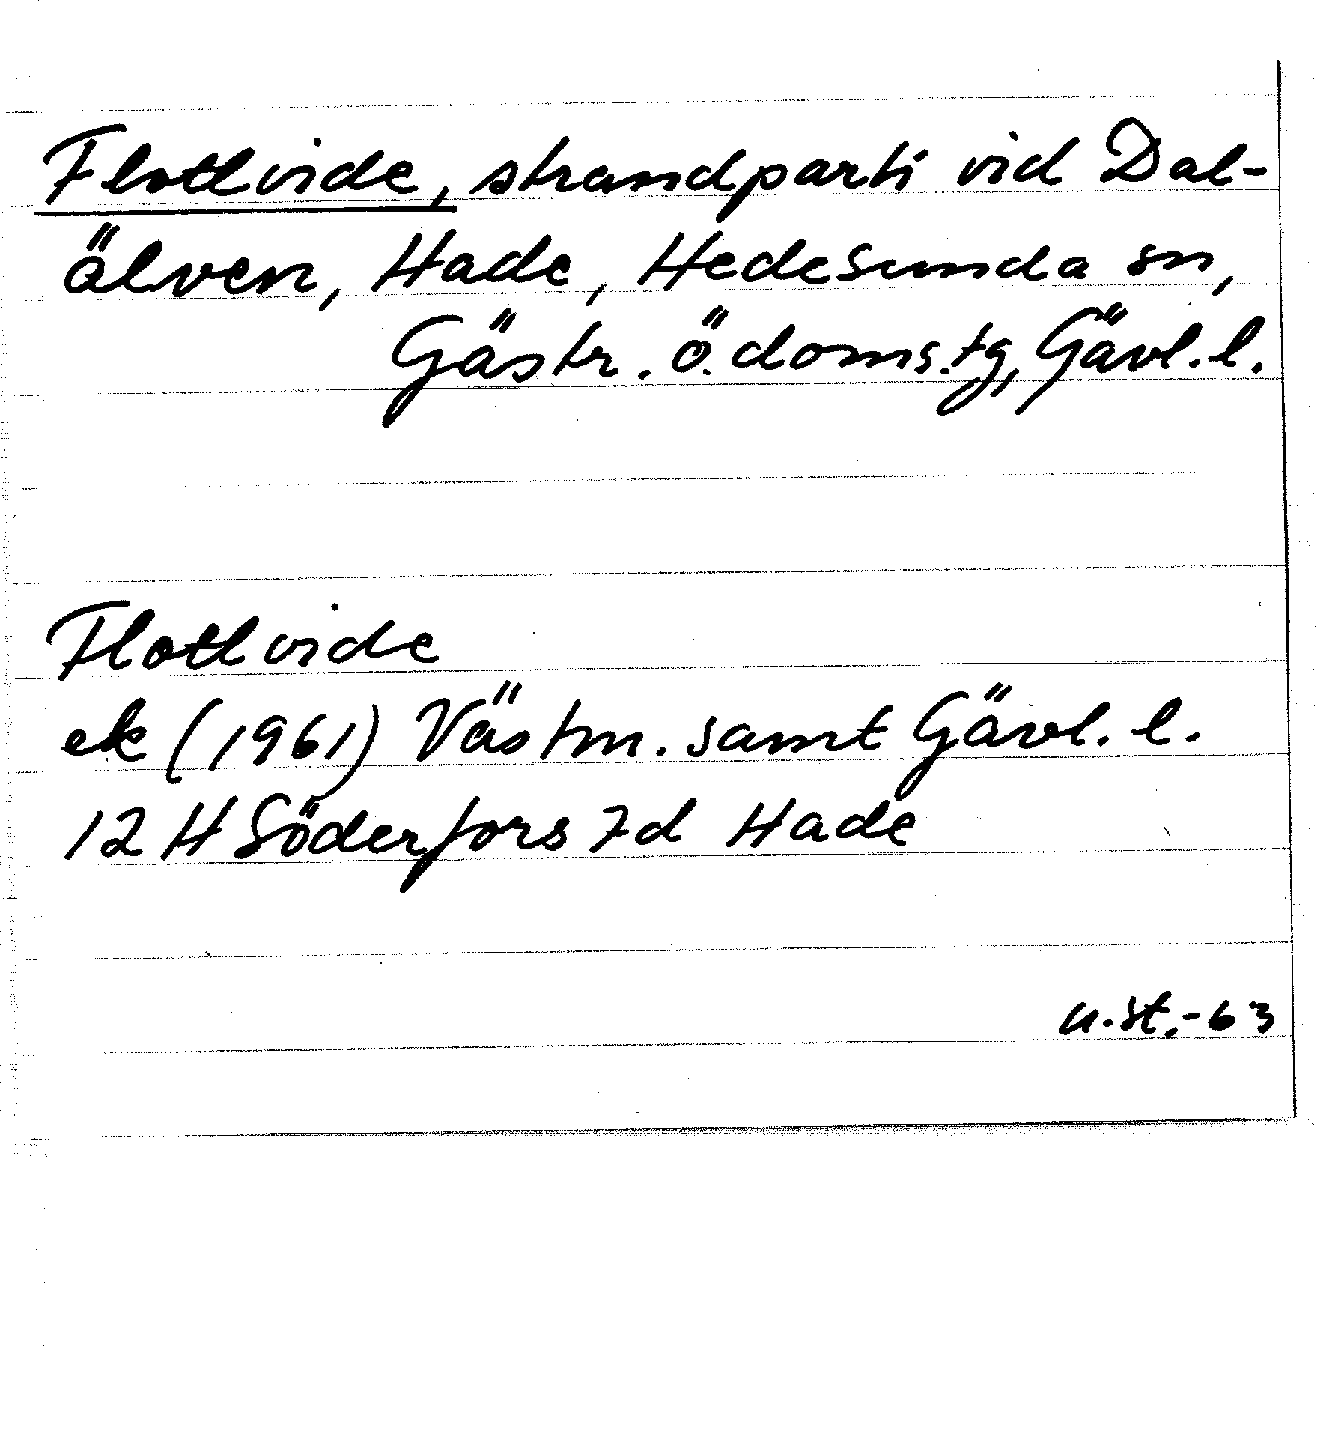 Flottvide, strandparti vid Dal-
älven, Hade, Hedesunda sn,
Gästr. ö. doms.tg, Gävl. l.
Flottvide
ek (1961) Västm. samt Gävl. l.
12 H Söderfors 7d Hade
u.st.-63